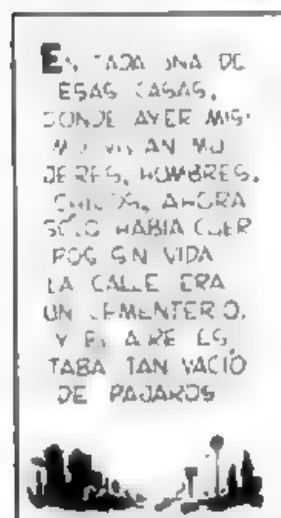 EN CADA UNA DE
ESAS CASAS,
DONDE AYER MIS-
MO VIVIAN MU
JERES, HOMBRES,
CHICOS, AHORA
SÓLO HABIA CUER
POS SIN VIDA
LA CALLE ERA
UN CEMENTERIO.
Y EL AIRE ES
TABA TAN VACÍO
DE PAJAROS